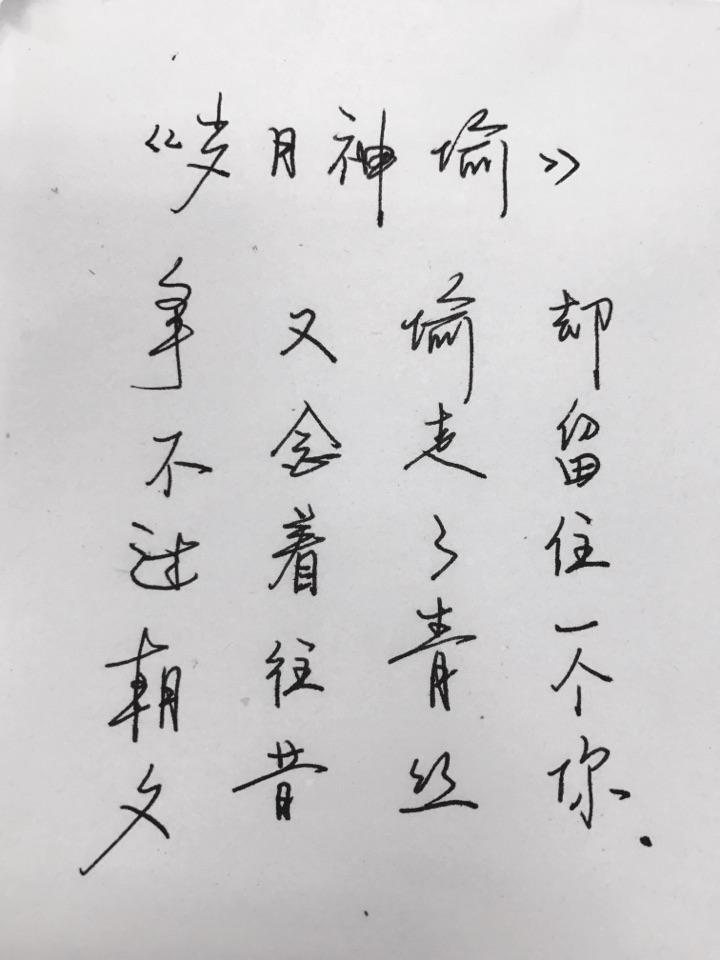 《岁月神偷》
争不过朝夕
又念着往昔
偷走了青丝
却留住一个你.